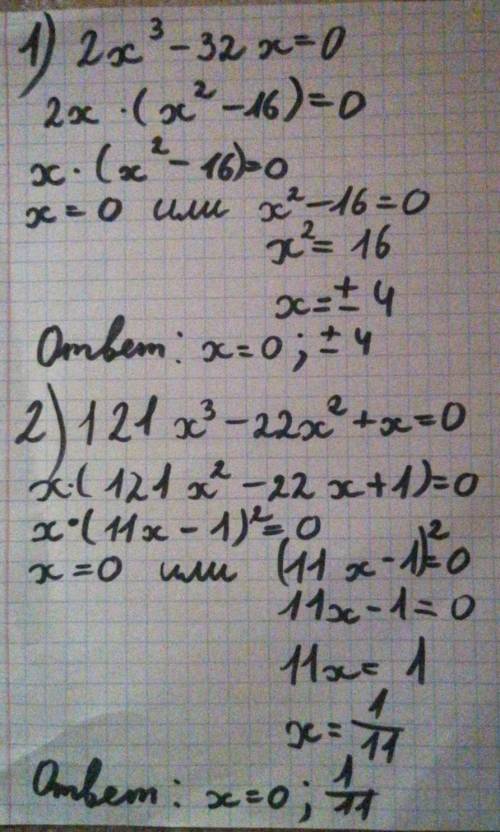 1) 2x³ - 32x = 0
2x · (x² - 16) = 0
x · (x² - 16) = 0
x = 0 или x² - 16 = 0
x² = 16
x = ± 4
Ответ: x = 0; ± 4
2) 121x³ - 22x² + x = 0
x · (121x² - 22x + 1) = 0
x · (11x - 1)² = 0
x = 0 или (11x - 1)² = 0
11x - 1 = 0
11x = 1
x = 1/11
Ответ: x = 0; 1/11